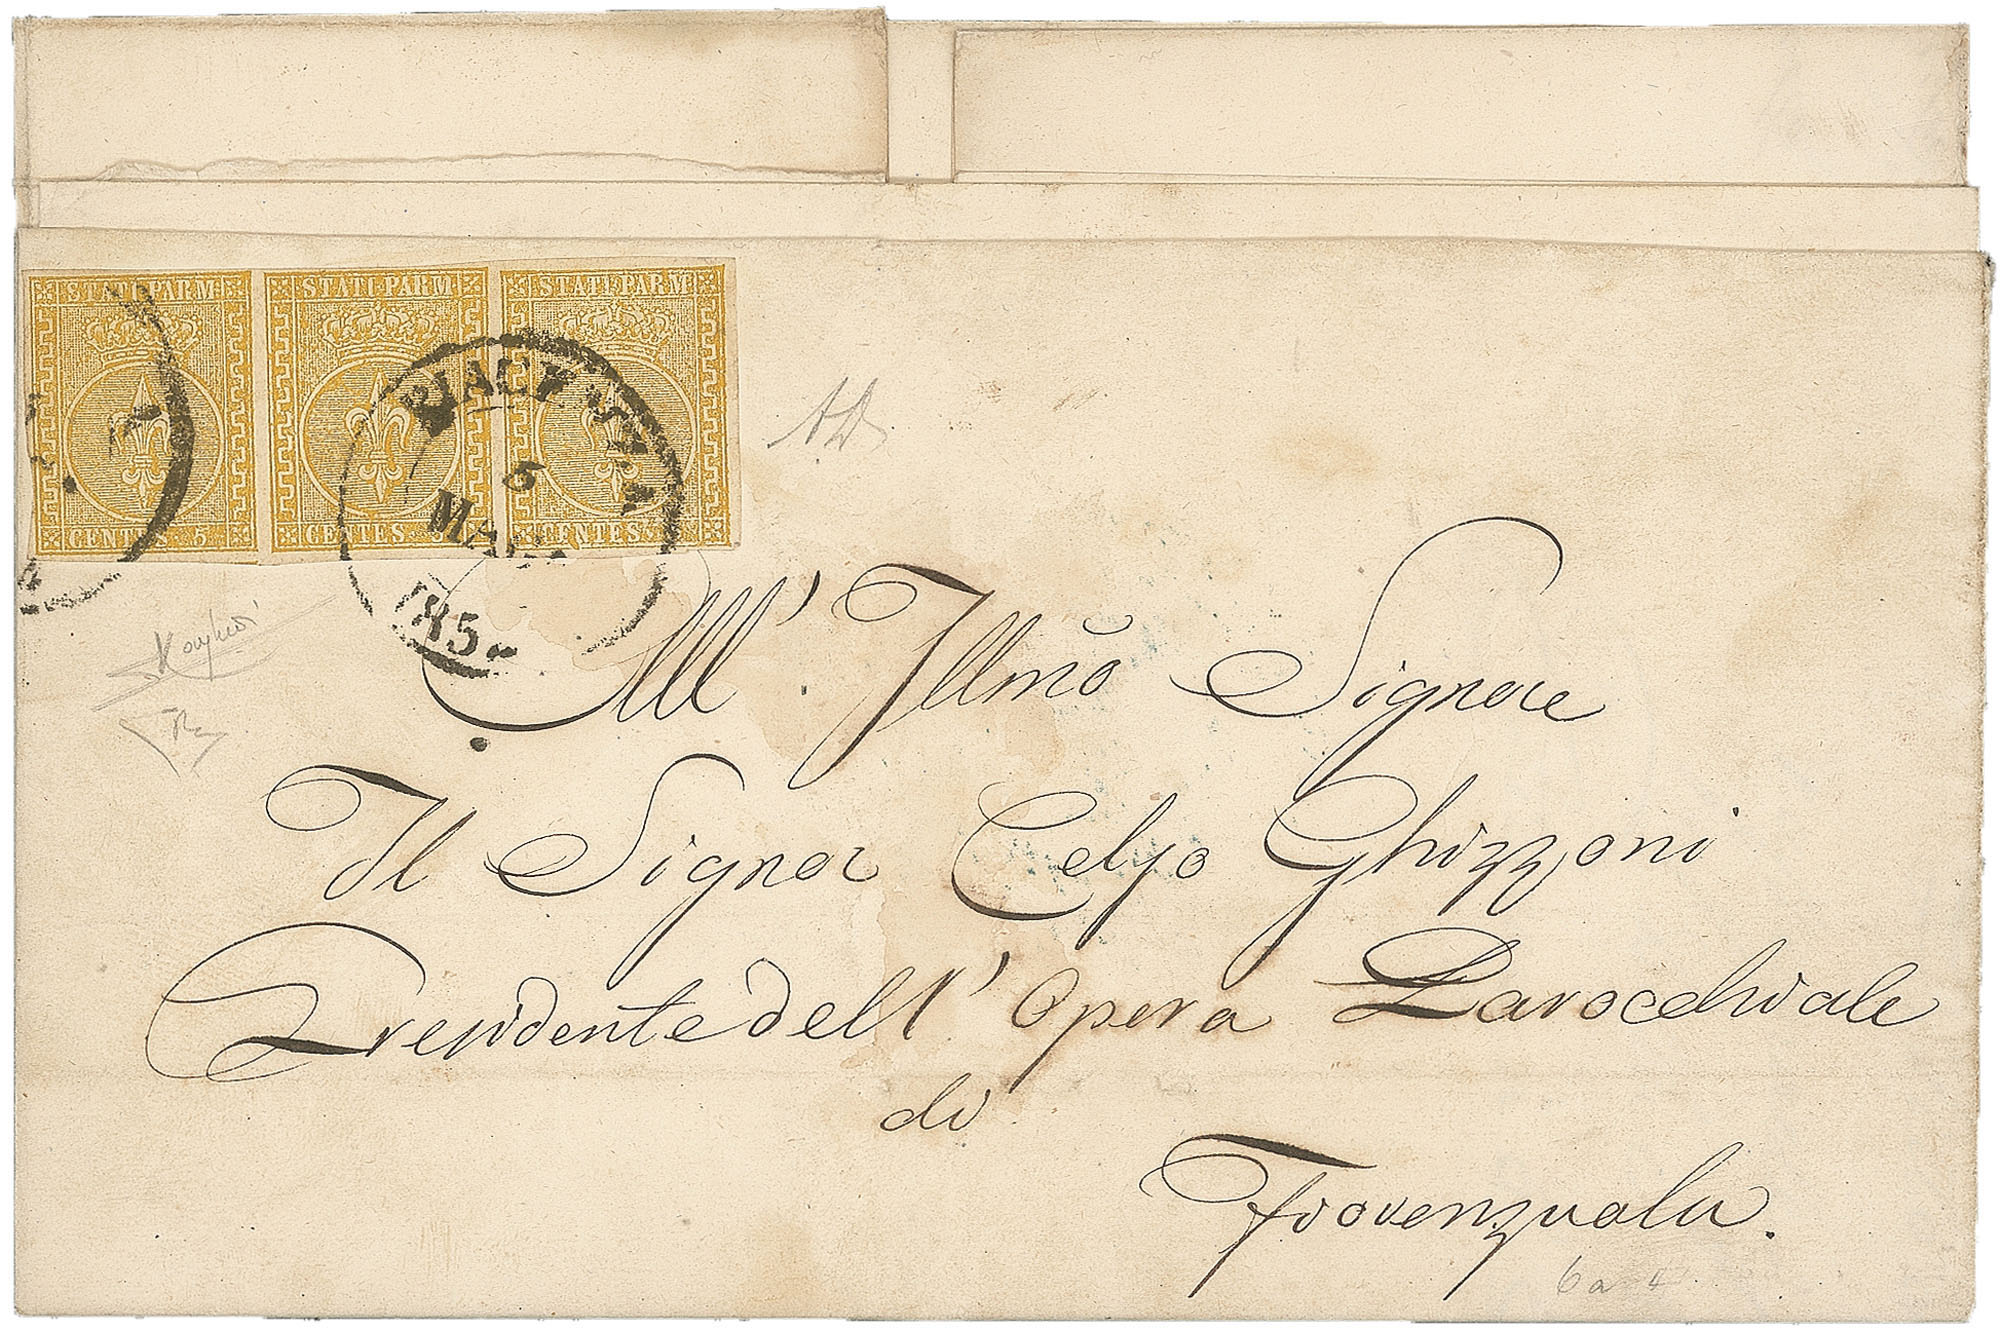 STATI PARM STATI PARM STATI PARM
CENTES. 5 CENTES. 5 CENTES. 5
PIACENZA
6
185
All' Illmõ Signore
Il Signor Celso Ghizzoni
Presidente dell' Opera Parocchiale
di
Fiorenzuola.
6a